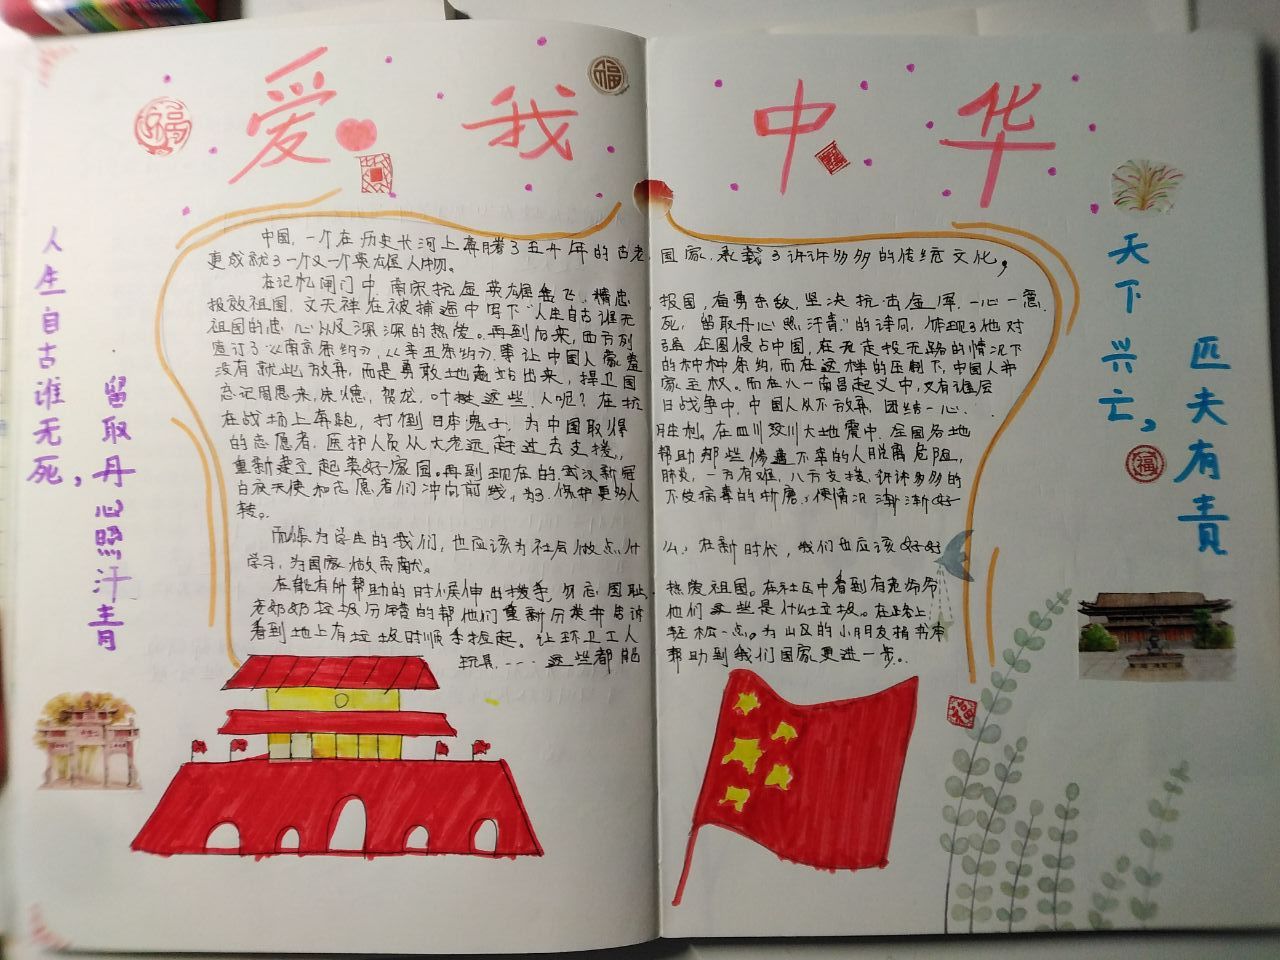 爱我中华
人生自古谁无死，
留取丹心照汗青
天下兴亡，
匹夫有责
中国，一个在历史长河上奔腾了五千年的古老国家，承载了许许多多的传统文化，
更成就了一个又一个英雄人物。
在记忆闸门中，南宋抗金英雄岳飞，精忠报国，有勇杀敌，坚决抗击金军，一心一意
报效祖国，文天祥在被捕途中写下“人生自古谁无死，留取丹心照汗青”的诗句，体现了他对
祖国的忠心以及深深的热爱。再到后来，西方列强企图侵占中国，在无走投无路的情况下
签订了《南京条约》，《辛丑条约》，等让中国人蒙羞的种种条约，而在这样的压制下，中国人并
没有就此放弃，而是勇敢地站出来，捍卫国家主权。而在八一南昌起义中，又有谁会
忘记周恩来，朱德，贺龙，叶挺这些人呢？在抗日战争中，中国人从不放弃，团结一心，
在战场上奔跑，打倒日本鬼子，为中国取得胜利。在四川汶川大地震中，全国各地
的志愿者，医护人员从大老远赶过去支援，帮助那些惨遭不幸的人脱离危险，
重新建立起美好家园。再到现在的武汉新冠肺炎，一方有难，八方支援，许许多多的
白衣天使和志愿者们冲向前线，为了保护更多人不受病毒的折磨，使情况渐渐好
转。
而作为学生的我们，也应该为社会做点什么，在新时代，我们也应该好好
学习，为国家做贡献。
在能有所帮助的时候伸出援手，勿忘国耻，热爱祖国。在社区中看到有老爷爷
老奶奶垃圾分错的帮他们重新分类并告诉他们这些是什么垃圾。在路上
看到地上有垃圾时顺手捡起。让环卫工人轻松一点。为山区的小朋友捐书本
玩具，……这些都能帮助到我们国家更进一步。
福
福
福